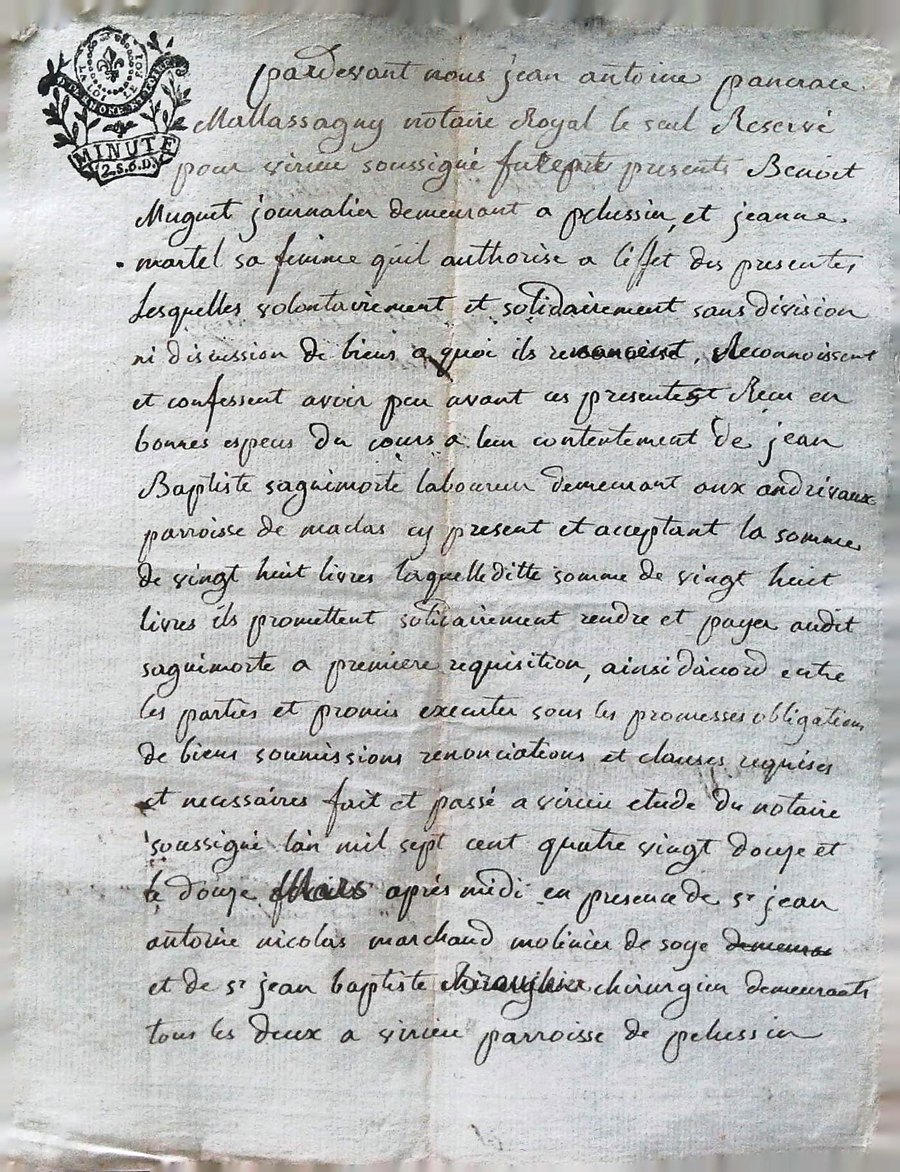 LA LOI LE ROI
DEP. RHONE ET LOIRE
MINUTE
2.S.6.D.
pardevant nous jean antoine pancrace
Mallassagny notaire Royal le seul Reservé
pour virieu soussigné furent presents Benoit
Muguet journalier demeurant a pelussin, et jeanne
martel sa femme quil authorise a l'effet des presentes
Lesquelles volontairement et solidairement sans division
ni discussion de biens a quoi ils renoncent, Reconnoissent
et confessent avoir peu avant ces presentes Recu en
bonnes especes du cours a leur contentement de jean
Baptiste saguimorte laboureur demeurant aux andrivaux
parroisse de maclas cy present et acceptant la somme
de vingt huit livres laquelle ditte somme de vingt huit
livres ils promettent solidairement rendre et payer audit
saguimorte a premiere requisition, ainsi d'acord entre
les parties et promis executer sous les promesses obligations
de biens soumissions renonciations et clauses requises
et necessaires fait et passé a virieu etude du notaire
soussigné l'an mil sept cent quatre vingt douze et
le douze Mars après midi en presence de sr jean
antoine nicolas marchand molinier de soye demeura
et de sr jean baptiste chirurgien demeurants
tous les deux a virieu parroisse de pelussin